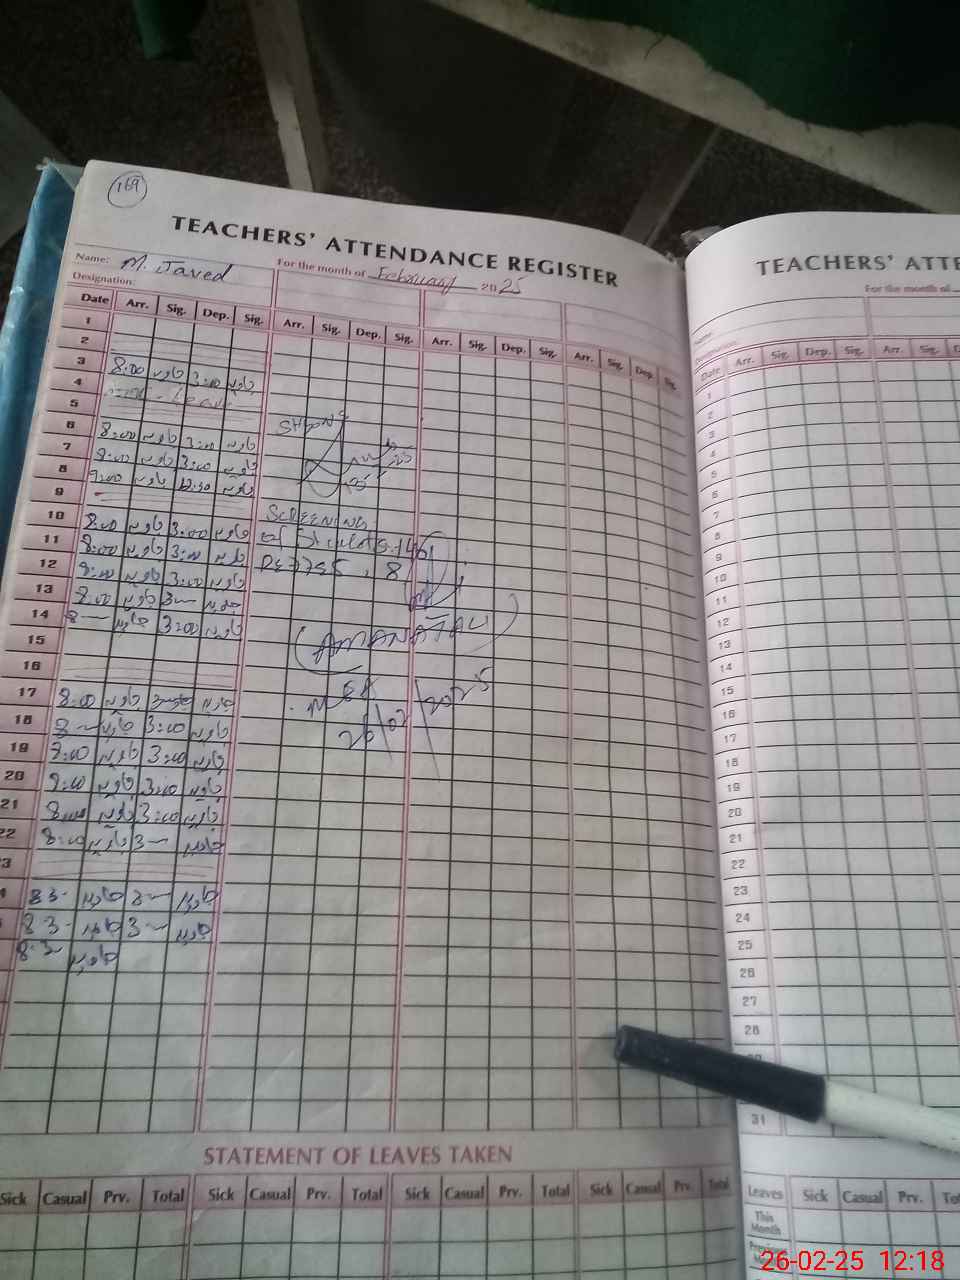 169
TEACHERS' ATTENDANCE REGISTER
Name: M. Javed For the month of February 2025
Designation:
Date Arr. Sig. Dep. Sig. Arr. Sig. Dep. Sig. Arr. Sig. Dep. Sig. Arr. Sig. Dep. Sig.
1
2
3 8:00 جاوید 3:00 جاوید
4 Leave
5
6 8:00 جاوید 3:00 جاوید
7 8:00 جاوید 3:00 جاوید
8 9:00 جاوید 12:30 جاوید
9
10 8:00 جاوید 3:00 جاوید
11 8:00 جاوید 3:00 جاوید
12 8:00 جاوید 3:00 جاوید
13 8:00 جاوید 3 جاوید
14 8 جاوید 3:00 جاوید
15
16
17 8:00 جاوید جاوید
18 8 جاوید 3:00 جاوید
19 8:00 جاوید 3:00 جاوید
20 8:00 جاوید 3:00 جاوید
21 8:00 جاوید 3:00 جاوید
22 8:00 جاوید 3 جاوید
3
8 3- جاوید 3 جاوید
8 3- جاوید 3 جاوید
8 3- جاوید
SCREENING
of
8
(AMANAT ALI)
MEA
26/02/2025
STATEMENT OF LEAVES TAKEN
Sick Casual Prv. Total Sick Casual Prv. Total Sick Casual Prv. Total Sick Casual Prv. Total
TEACHERS' ATTE
For the month of
Name:
Designation:
Date Arr. Sig. Dep. Sig. Arr. Sig.
1
2
3
4
5
6
7
8
9
10
11
12
13
14
15
16
17
18
19
20
21
22
23
24
25
26
27
28
31
Leaves Sick Casual Prv.
This Month
26-02-25 12:18